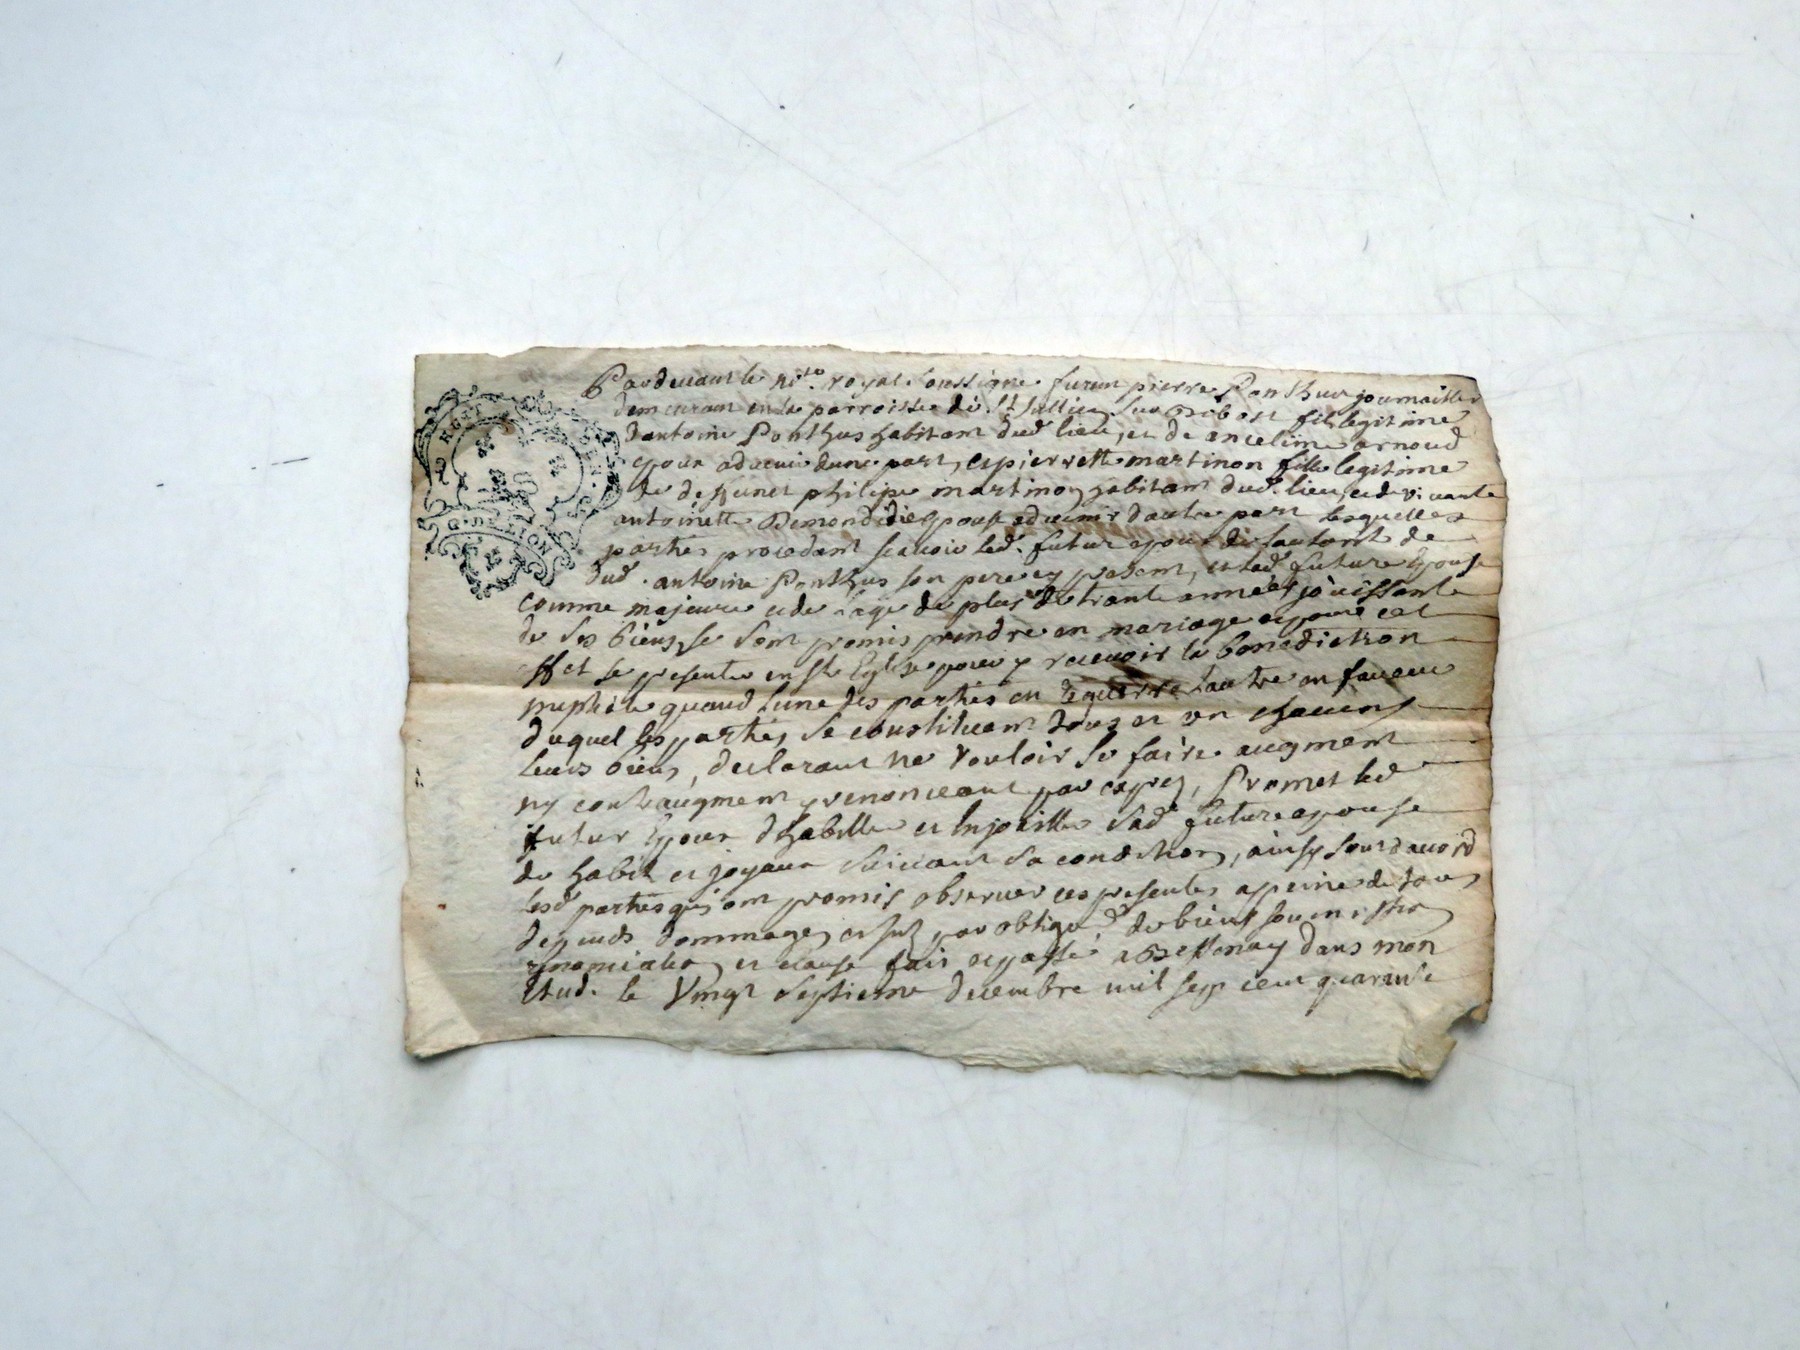 Pardevant le no.re royal soussigne furent pierre Ponthus journaillier
demeurant en la parroisse de St Jullien sur Bibost fils legitime
dantoine Ponthus habitant dud. lieu, et de anceline arnoud
epoux advenir dune part, et pierrette martinon fille legitime
de deffunct philipe martinon habitant dud. lieu, et de vivante
antoinette Demondidie Epouse advenir dautre part lesquelles
parties procedant scavoir led. futur epoux de lautorite de
dud. antoine Ponthus son pere cy present, et lad. future Epouse
comme majeure et de lage de plus de trante années jouissante
de ses biens, se sont promis prendre en mariage et pour cet
effet se presenter en Ste Eglise pour y recevoir la benediction
nuptiale quand lune des parties en requerra lautre en faveur
duquel les parties se constituent tous et un chacuns
leurs biens, declarant ne vouloir se faire augment
ny contraugment y renonceant par exprez, Promet led
futur Epoux dhabiller et Enjoailler sad. future epouse
de habits et joyaux suivant sa condition, ainsy sont daccord
lesd. parties qui ont promis observer ces presentes a peine de tous
depends dommages et par oblig.on de biens soumission
renonciation et clause fait et passé a Bessenay dans mon
Etude. le Vingt Septieme decembre mil sept cent quarante
GEN
DE LION